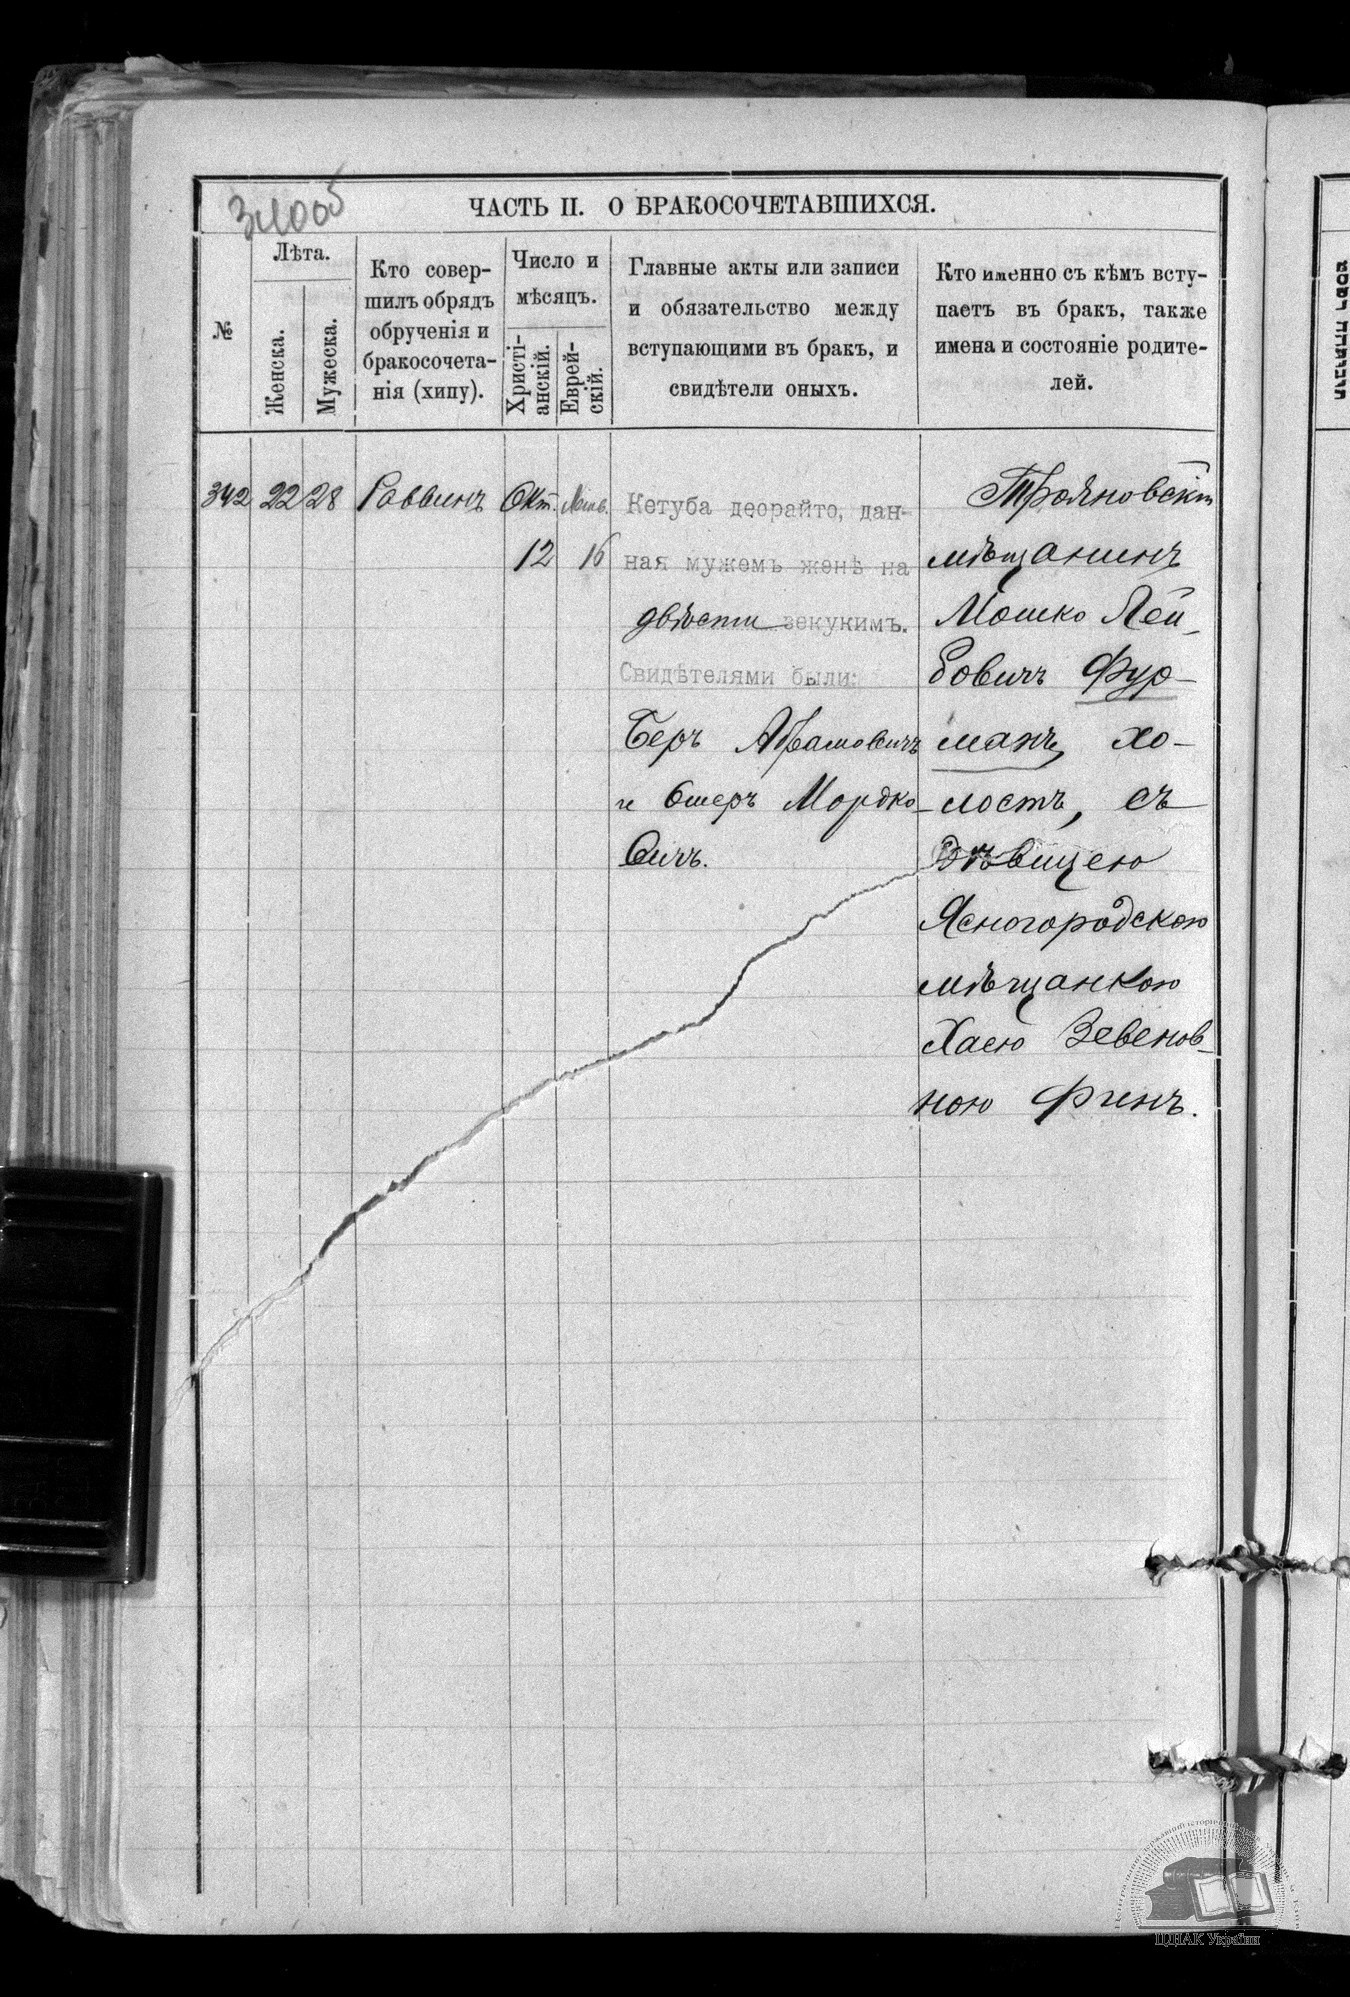 ЧАСТЬ II. О БРАКОСОЧЕТАВШИХСЯ.
№
Лѣта.
Женска.
Мужеска.
Кто совер-
шилъ обрядъ
обрученія и
бракосочета-
нія (хипу).
Число и
мѣсяцъ.
Христі-
анскій.
Еврей-
скій.
Главные акты или записи
и обязательство между
вступающими въ бракъ, и
свидѣтели оныхъ.
Кто именно съ кѣмъ всту-
паетъ въ бракъ, также
имена и состояніе родите-
лей.
342
22
28
Раввинъ
Окт.
12
16
Кетуба деорайто, дан-
ная мужемъ женѣ на
двѣсти зекукимъ.
Свидѣтелями были:
Беръ Абрамовичъ
и Ошеръ Мордко-
вичъ.
Трояновскій
мѣщанинъ
Мошко Лей-
бовичъ Фур-
манъ, хо-
лостъ, съ
дѣвицею
Ясногородскою
мѣщанкою
Хаею Зевенов-
ною Финъ.
ЦДІАК України